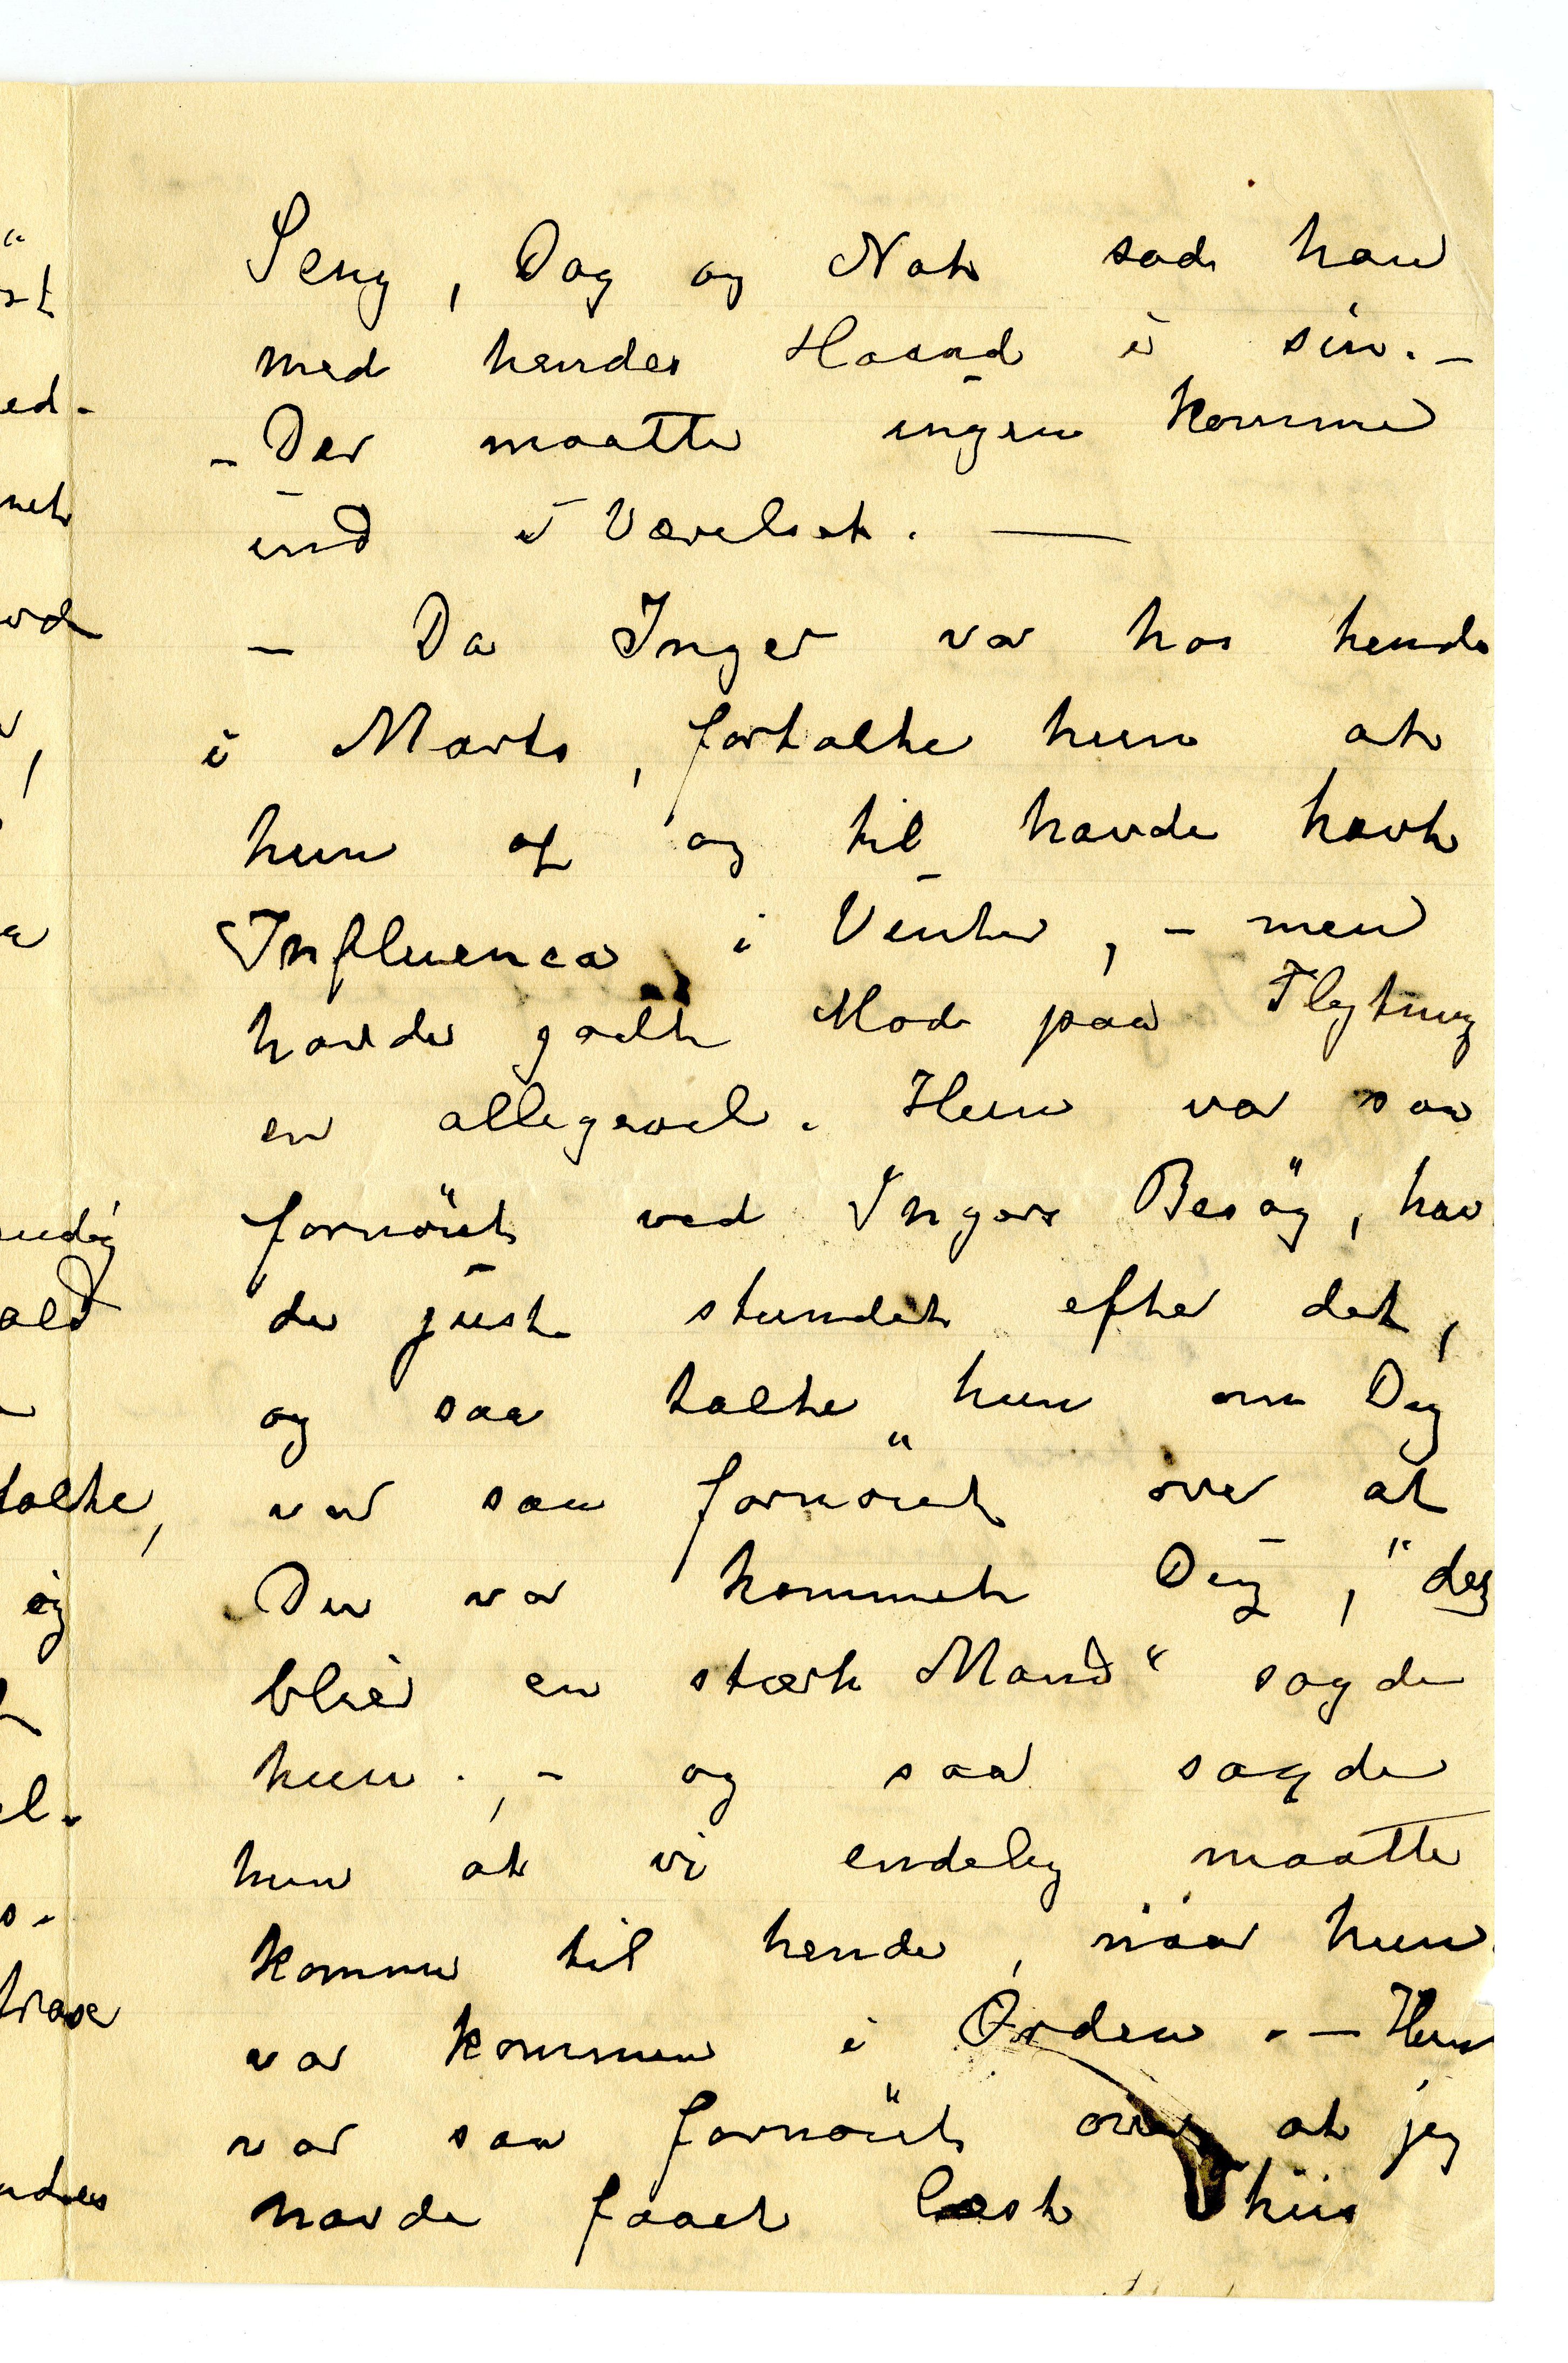 Seng, Dag og Nat sad han
med hendes Haand i sin. –
– Der maatte ingen komme
ind i Værelset. —
– Da Inger var hos hende
i Marts, fortalte hun at
hun af og til havde havt
Influenca i Vinter, – men
havde godt Mod paa Flytning
en alligevel. Hun var saa
fornöiet ved Ingers Besög, hav
de just stundet efter det,
og saa talte hun om Dig
var saa fornöiet over at
Du var kommet Dig, "deg
blir en stærk Mand" sagde
hun. , – og saa sagde
hun at vi endelig maatte
komme til hende, naar hun
var kommen i Orden. – Hun
var saa fornöiet over at jeg
havde faaet læst hus
"
st
ed.
net
,
endig
talte,
ig
el.
s.